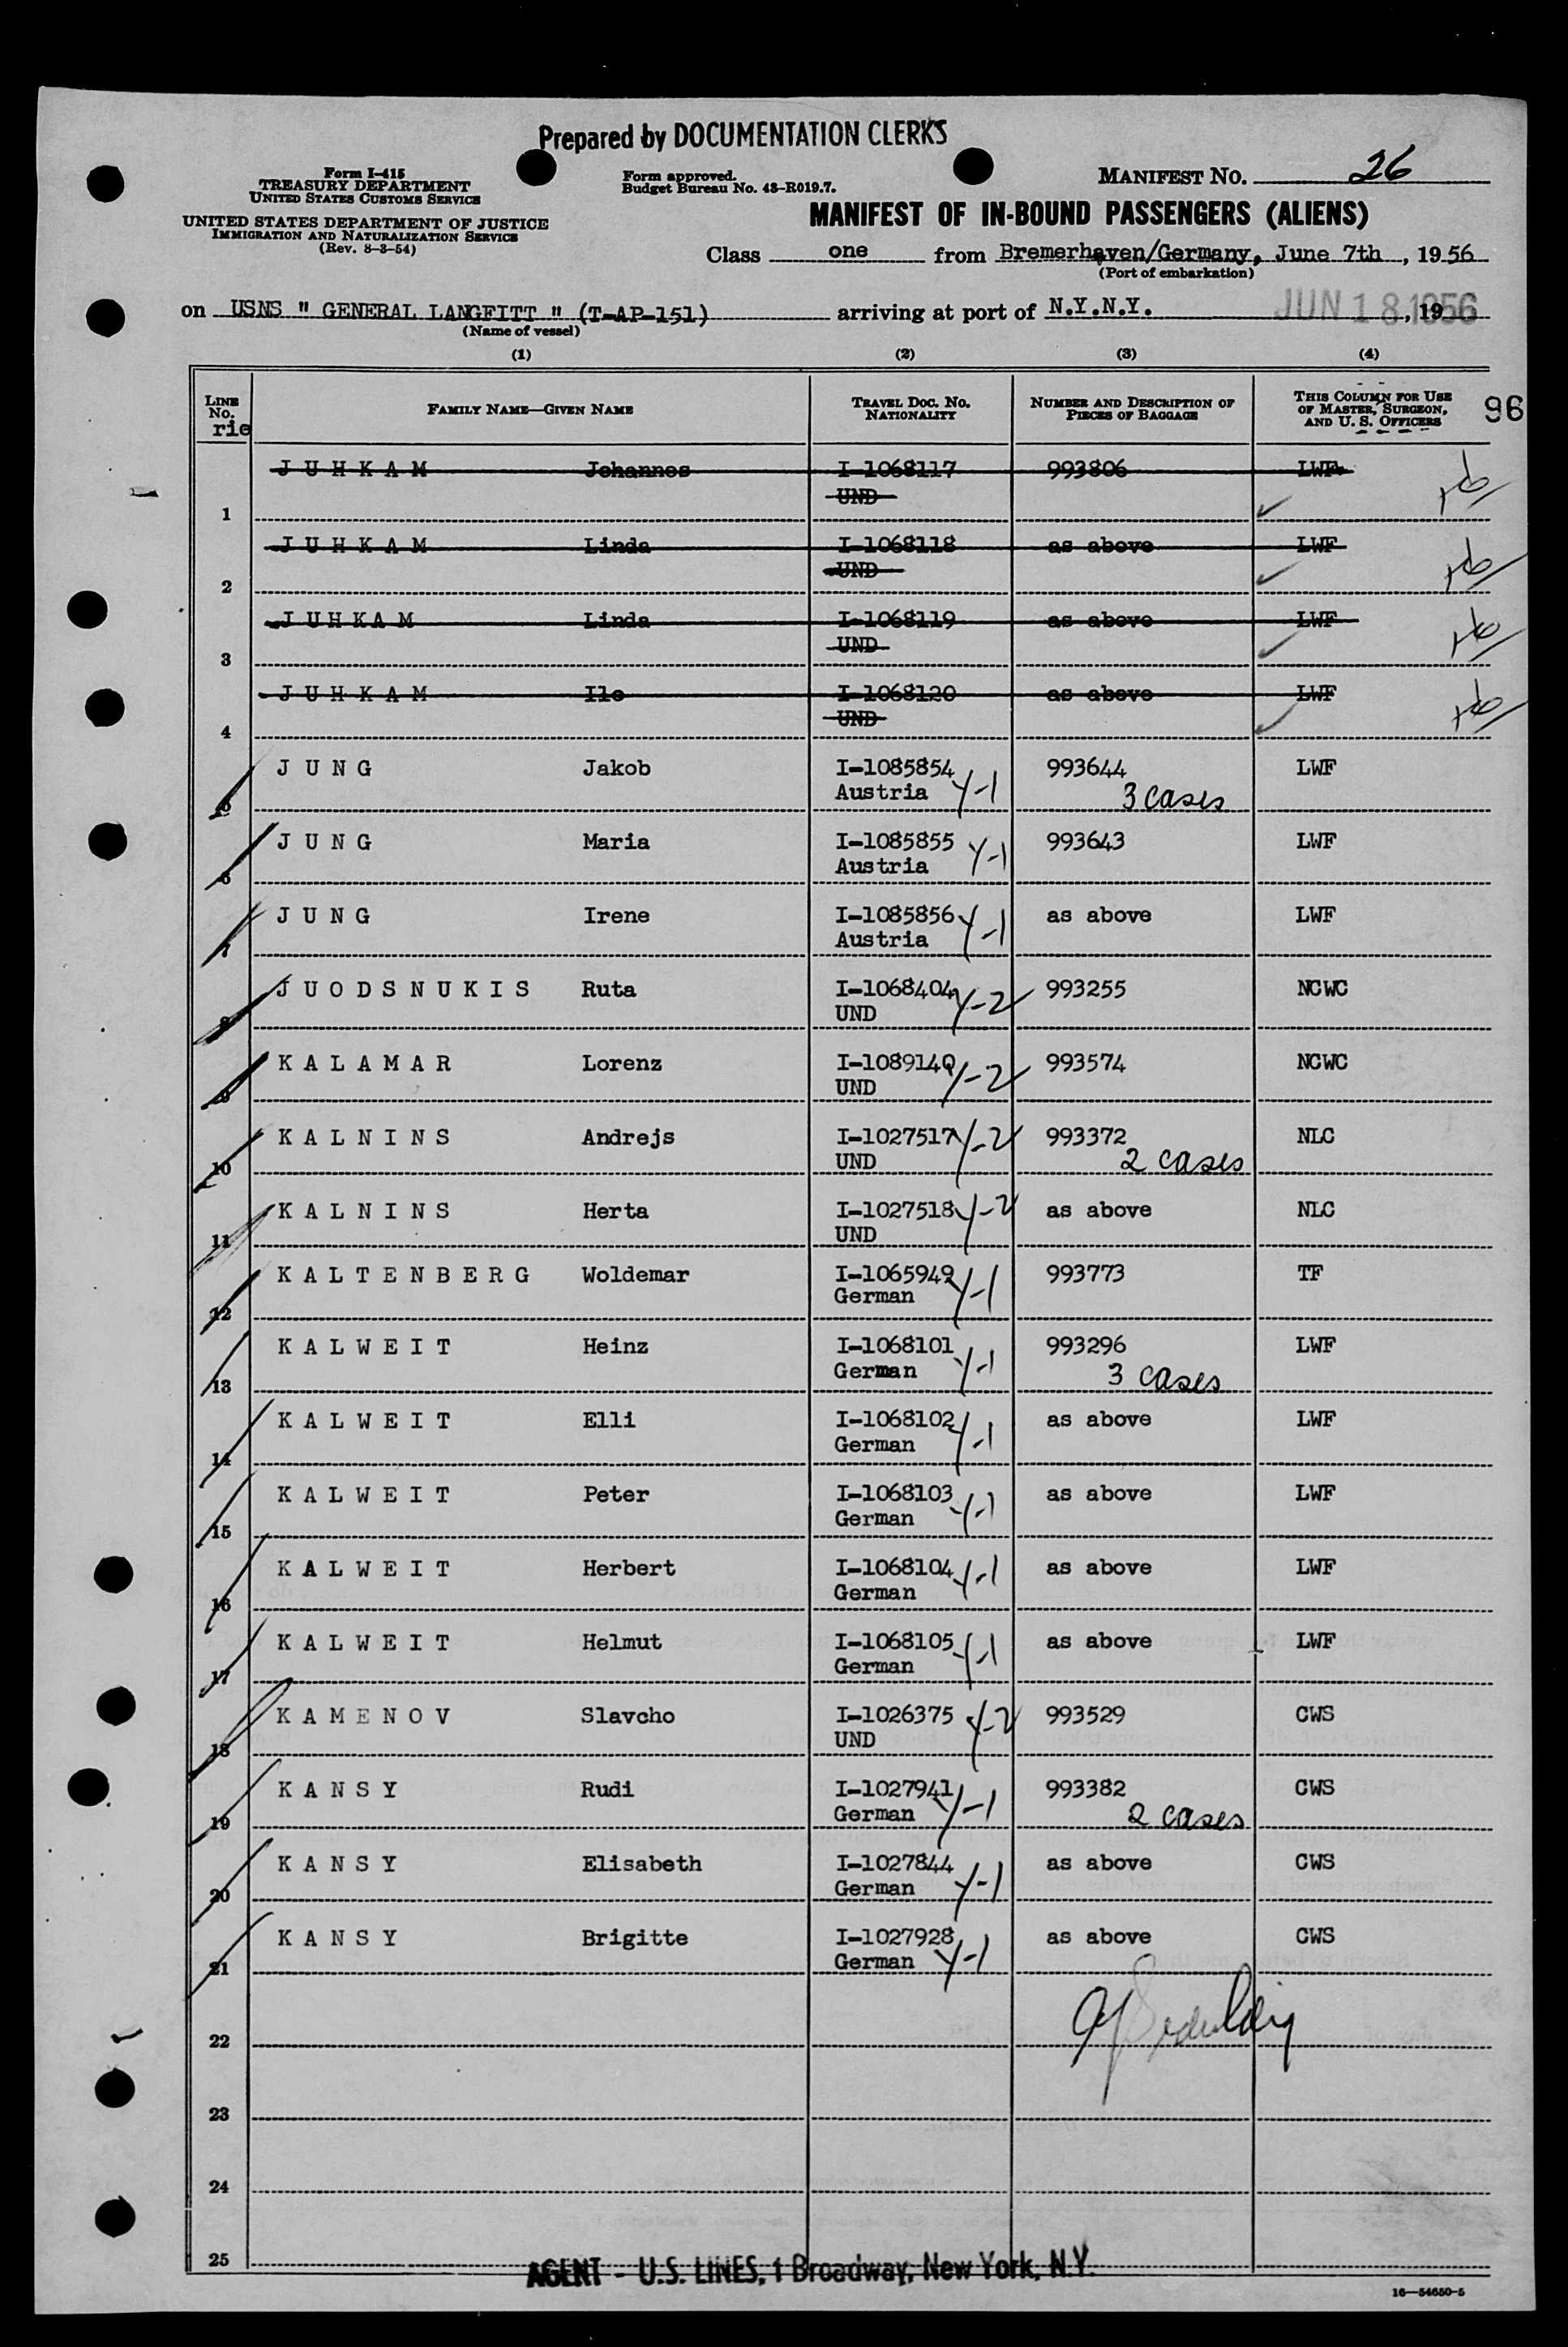 Prepared by DOCUMENTATION CLERKS
Form I-415
TREASURY DEPARTMENT
UNITED STATES CUSTOMS SERVICE
UNITED STATES DEPARTMENT OF JUSTICE
IMMIGRATION AND NATURALIZATION SERVICE
(Rev. 8-3-54)
Form approved.
Budget Bureau No. 43-R019.7.
MANIFEST NO. 26
MANIFEST OF IN-BOUND PASSENGERS (ALIENS)
Class one from Bremerhaven/Germany, June 7th, 1956
(Port of embarkation)
on USNS " GENERAL LANGFITT " (T-AP-151) arriving at port of N.Y.N.Y. JUN 18 1956, 19
(Name of vessel)
(1) (2) (3) (4)
LINE NO. FAMILY NAME—GIVEN NAME TRAVEL DOC. NO. NATIONALITY NUMBER AND DESCRIPTION OF PIECES OF BAGGAGE THIS COLUMN FOR USE OF MASTER, SURGEON, AND U. S. OFFICERS 96
rie
J U H K A M Johannes I-1068117 993806 LWF
1 UND
J U H K A M Linda I-1068118 as above LWF
2 UND
J U H K A M Linda I-1068119 as above LWF
3 UND
J U H K A M Ilo I-1068120 as above LWF
4 UND
J U N G Jakob I-1085854 993644 LWF
5 Austria Y-1 3 cases
J U N G Maria I-1085855 993643 LWF
6 Austria Y-1
J U N G Irene I-1085856 as above LWF
7 Austria Y-1
J U O D S N U K I S Ruta I-1068404 993255 NCWC
8 UND Y-2
K A L A M A R Lorenz I-1089140 993574 NCWC
9 UND Y-2
K A L N I N S Andrejs I-1027517 Y-2 993372 NLC
10 UND 2 cases
K A L N I N S Herta I-1027518 Y-2 as above NLC
11 UND
K A L T E N B E R G Woldemar I-1065949 993773 TF
12 German Y-1
K A L W E I T Heinz I-1068101 993296 LWF
13 German Y-1 3 cases
K A L W E I T Elli I-1068102 as above LWF
14 German Y-1
K A L W E I T Peter I-1068103 as above LWF
15 German Y-1
K A L W E I T Herbert I-1068104 Y-1 as above LWF
16 German
K A L W E I T Helmut I-1068105 Y-1 as above LWF
17 German
K A M E N O V Slavcho I-1026375 Y-2 993529 CWS
18 UND
K A N S Y Rudi I-1027941 993382 CWS
19 German Y-1 2 cases
K A N S Y Elisabeth I-1027844 as above CWS
20 German Y-1
K A N S Y Brigitte I-1027928 as above CWS
21 German Y-1
22
23
24
25
AGENT - U.S. LINES, 1 Broadway, New York, N.Y.
16—54650-5